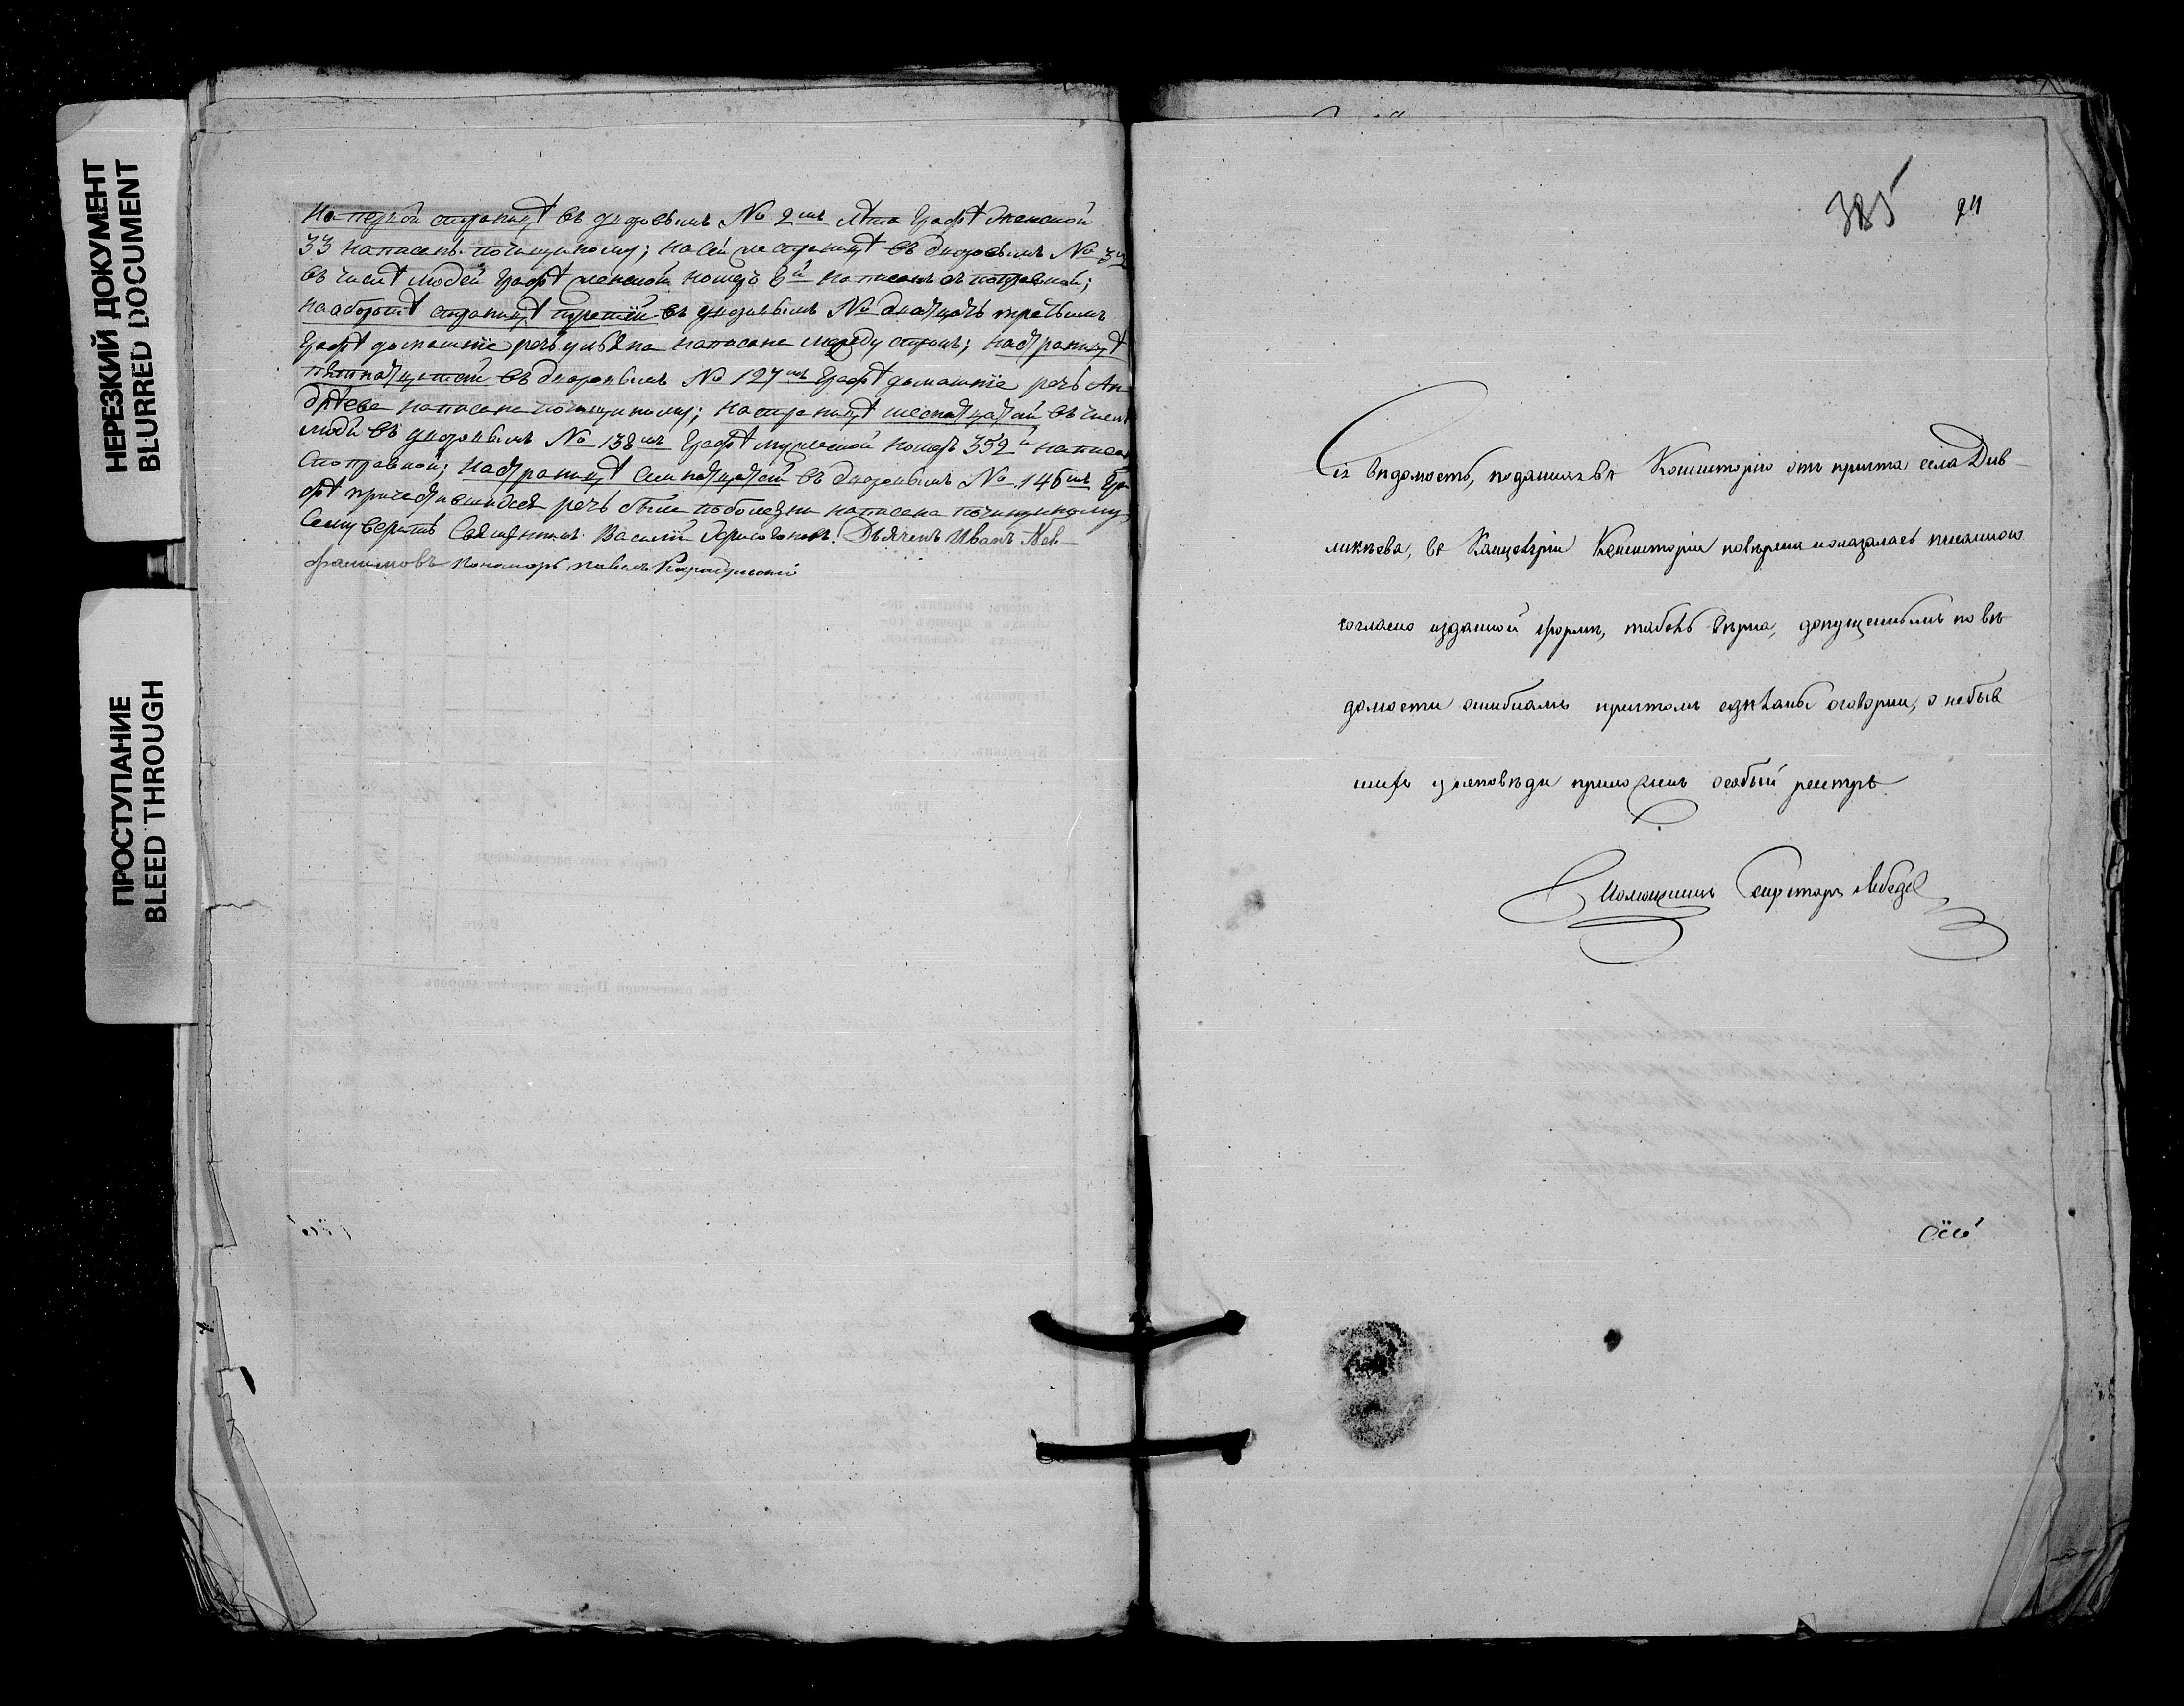 НЕРЕЗКИЙ ДОКУМЕНТ
BLURRED DOCUMENT
ПРОСТУПАНИЕ
BLEED THROUGH
На первой страницѣ въ дворовымъ № 2мъ лѣта графѣ женской
33 написанъ почищеному; на сей же страницѣ въ дворовымъ № 32
въ числѣ людей графѣ женской номеръ 8й написанъ съ поправкой;
на оборотѣ страницѣ третий въ дворовымъ № двадцать третьимъ
графѣ домашніе речь написана между строкъ; на страницѣ
пятнадцатой въ дворовымъ № 127мъ графѣ домашніе речь Ан-
дрѣева написана почищеному; на страницѣ шеснадцатой въ числѣ
людей въ дворовымъ № 138мъ графѣ мужеской номеръ 352й написанъ
споправкой; на страницѣ семнадцатой въ дворовымъ № 146мъ гра-
фѣ причастившихся речь были по болезни написана почищеному,
Сему верить Священникъ Василій Хрисогоновъ. Дьячекъ Иванъ
пономарь Павелъ
385
Сія вѣдомость, поданная въ Консисторію отъ причта села Див-
ликѣева, въ Канцеляріи Консисторіи повѣрена и оказалась писанною
согласно изданной формы, табель вѣрна, допущеннымъ по вѣ-
домости ошибкамъ причтомъ сдѣланы оговорки, о небыв
шихъ у исповѣди приложенъ особый реэстръ
Помощникъ Секретаря Лебедев